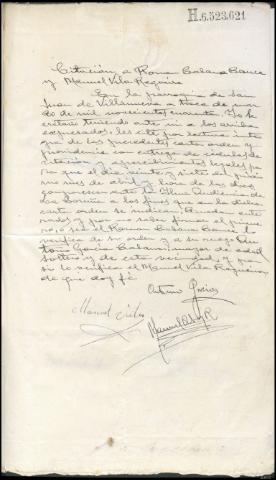 H.6.523.621
Citación a Roman Cabana Cance
y Manuel Vila Regueira
En la parroquia de San
Juan de Villanueva a trece de mar-
zo de mil novecientos cuarenta. Yo Se-
cretario teniendo ante mi a los arriba
expresados, les cité por lectura inte-
gra de las precedentes carta orden y
providencia con entrega de cedulas de
citación y apercibimientos legales pa-
ra que el dia veinte y siete del próxi-
mo mes de abril y hora de las diez
comparezcan ante la Ilma Audiencia de
La Coruña a los fines que en la dicha
carta orden se indican. Quedan ente-
rados y por no saber firmar el prime-
ro, o sea el Roman Cabana Cance lo
verifica de su orden y a su ruego An-
tonio García Cabana, mayor de edad
soltero y de esta vecindad, y por
si lo verifica el Manuel Vila Regueira,
de que doy fé
Manuel Vila